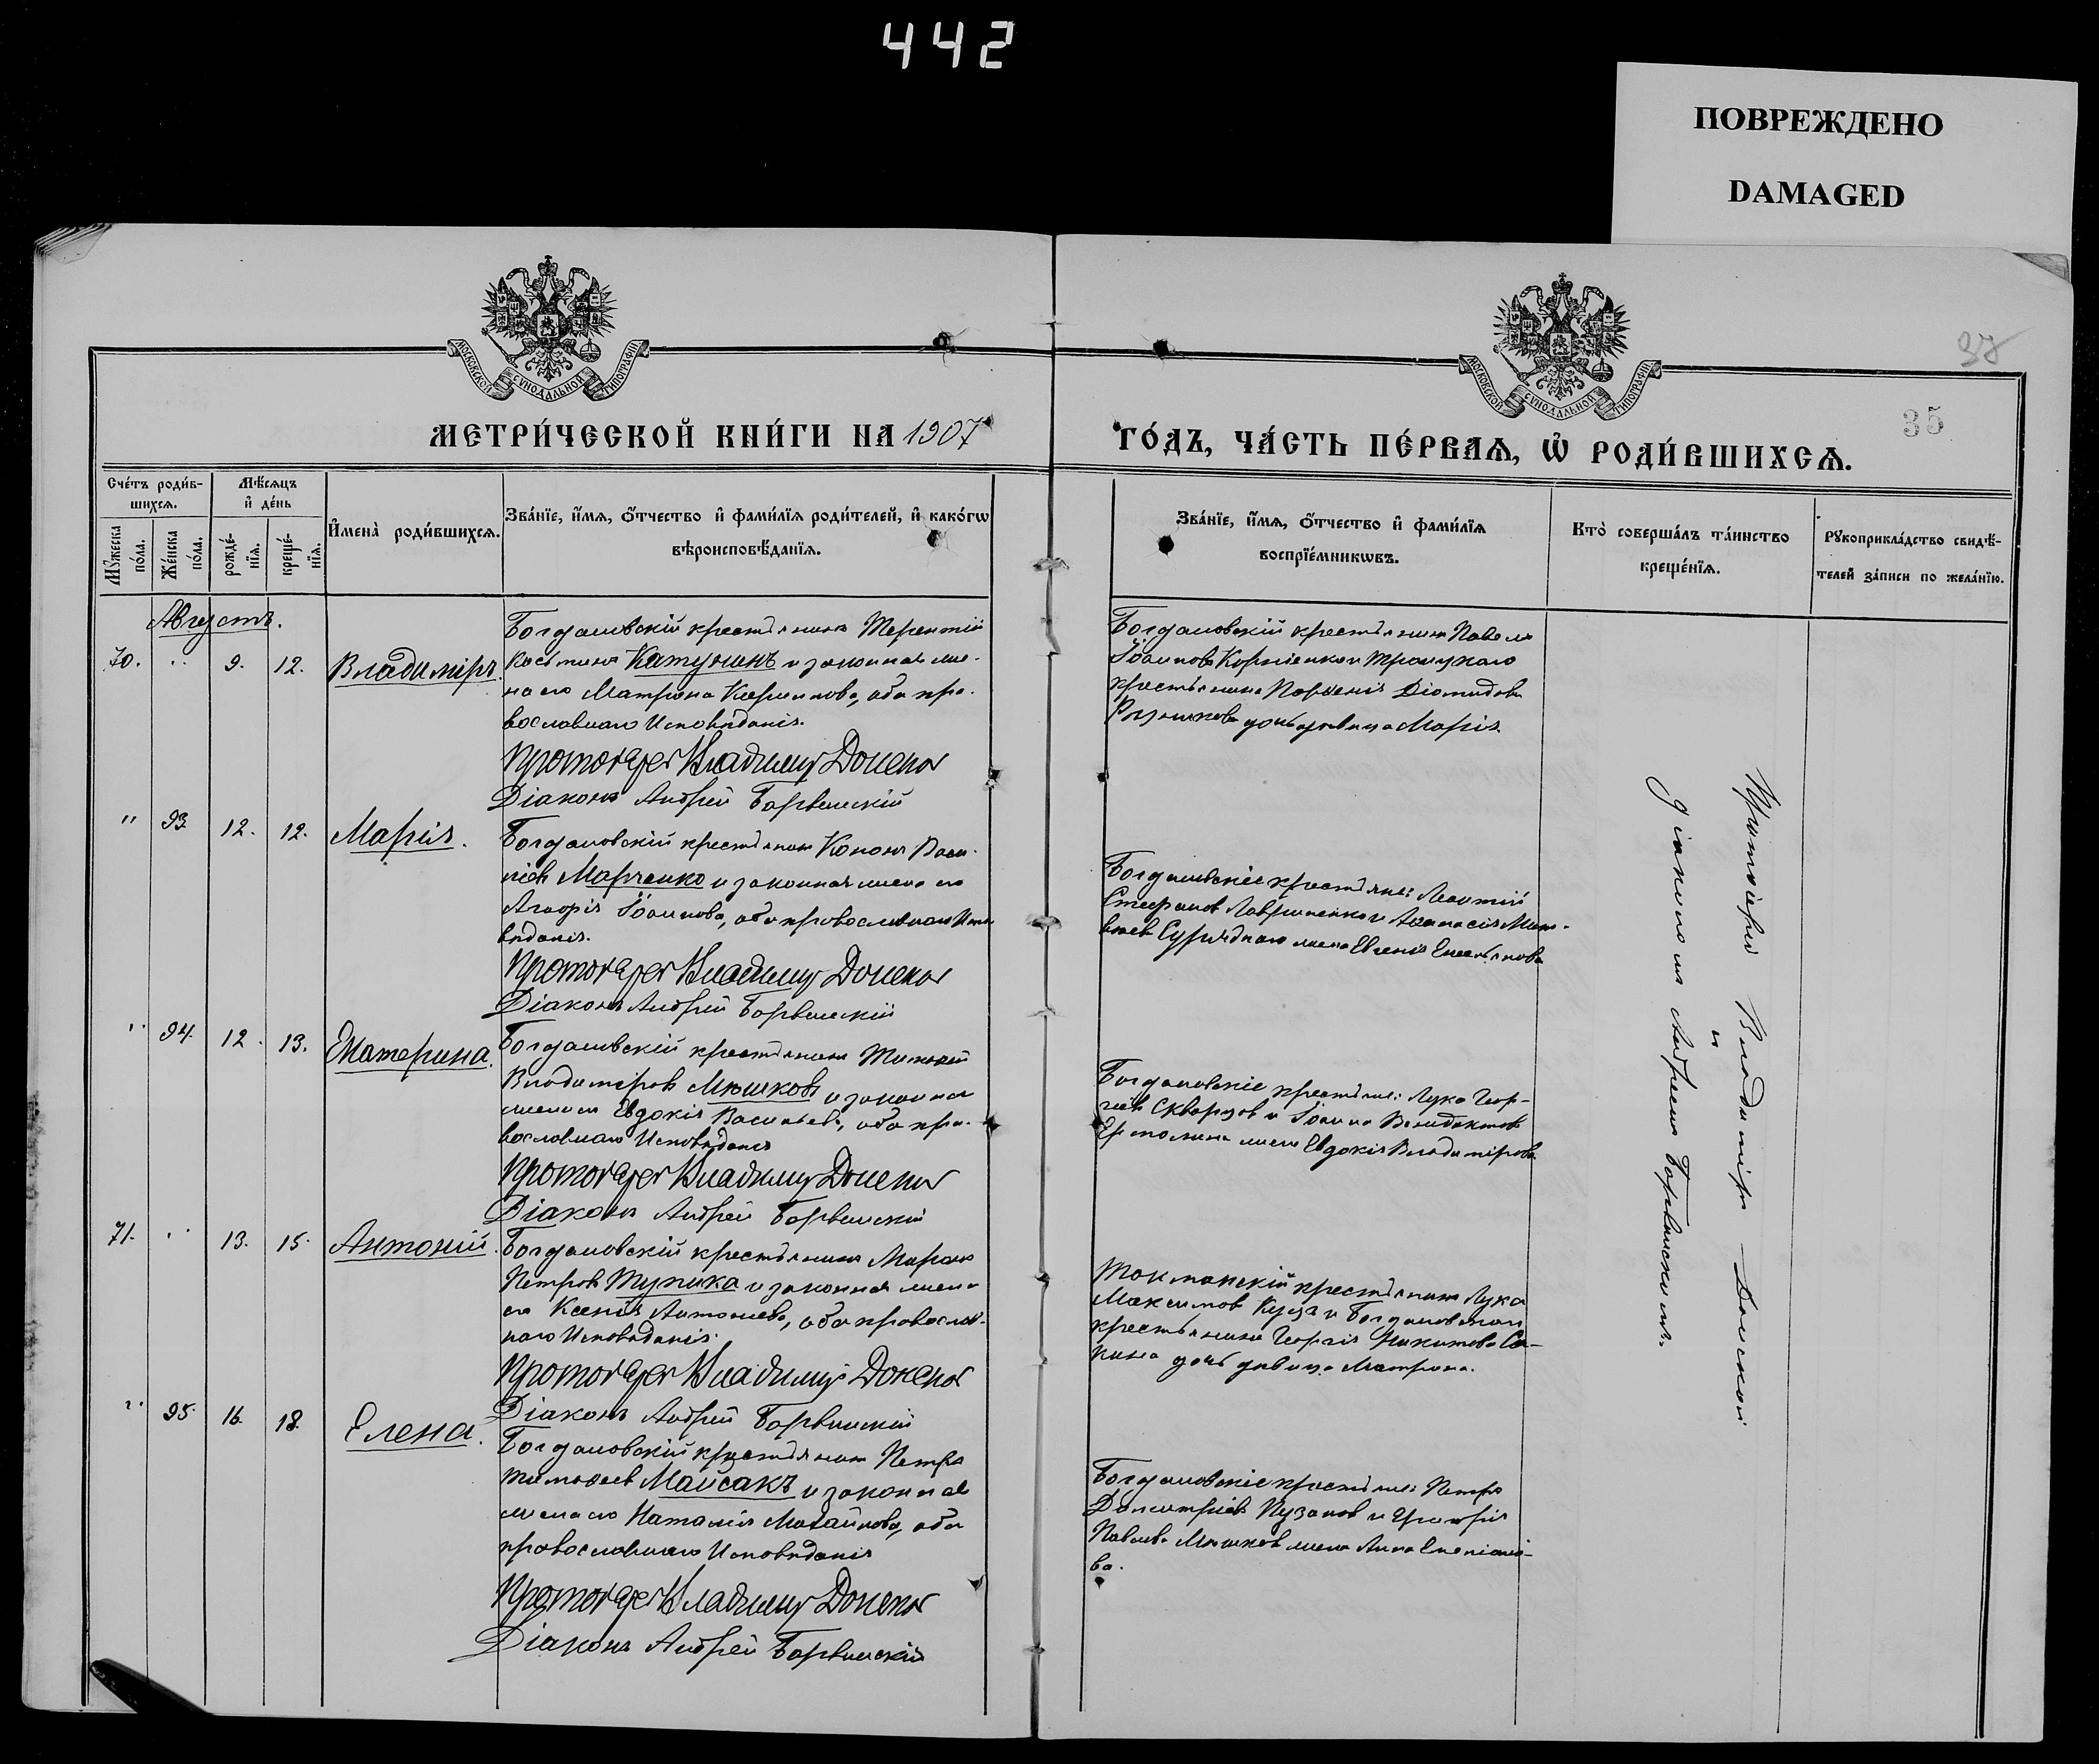 442
ПОВРЕЖДЕНО
DAMAGED
МОСКОВСКОЙ СѴНОДАЛЬНОЙ ТИПОГРАФІИ
МОСКОВСКОЙ СѴНОДАЛЬНОЙ ТИПОГРАФІИ
35
МЕТРИ́ЧЕСКОЙ КНИ́ГИ НА 1907
ГО́ДЪ, ЧА́СТЬ ПЕ́РВАѦ, Ѽ РОДИ́ВШИХСѦ.
Сче́тъ роди́в-
шихсѧ.
Мѣ́сѧцъ
и҆ де́нь
Мꙋ́жеска
по́ла.
Же́нска
по́ла.
рожде́-
нїѧ.
креще́-
нїѧ.
И҆мена̀ роди́вшихсѧ.
Зва́нїе, и҆́мѧ, ѻ҆́тчество и҆ фами́лїѧ роди́телей, и҆ како́гѡ
вѣроисповѣ́данїѧ.
Зва́нїе, и҆́мѧ, ѻ҆́тчество и҆ фами́лїѧ
воспрїе́мникѡвъ.
Кто̀ соверша́лъ та́инство
креще́нїѧ.
Рꙋкоприкла́дство свидѣ́-
телей за́писи по жела́нїю.
Августъ.
70. " 9. 12. Владиміръ.
Богдановскій крестьянинъ Терентій
Косьминъ Катунинъ и законная же-
на его Матрона, оба пра-
вославнаго Исповѣданія.
Протоіерей Владимір Донской
Діаконъ Андрей Борвинскій
Богдановскій крестьянинъ Павелъ
Іоановъ Корніенко и Троицкаго
крестьянина Парѳенія Діомидова
дочь дѣвица Марія.
" 93. 12. 12. Марія.
Богдановскій крестьянинъ Кононъ Васи-
ліевъ Марченко и законная жена его
Іоанова, оба православнаго Испо-
вѣданія.
Протоіерей Владимір Донской
Діаконъ Андрей Борвинскій
Богдановскіе крестьяне: Леонтій
Стефановъ Лавриненко и Аѳанасія
жена Евгенія Емельянова
" 94. 12. 13. Екатерина.
Богдановскій крестьянинъ Тимоѳей
Владиміровъ Мѣшковъ и законная
жена его Евдокія Васильева, оба пра-
вославнаго Исповѣданія
Протоіерей Владимір Донской
Діаконъ Андрей Борвинскій
Богдановскіе крестьяне: Лука Геор-
гіевъ Скворцовъ и Іоанна Венедиктова
Ермолина жена Евдокія Владимірова
71. " 13. 15. Антоній.
Богдановскій крестьянинъ Миронъ
Петровъ Тупика и законная жена
его Ксенія Антоніева, оба православ-
наго Исповѣданія.
Протоіерей Владимір Донской
Діаконъ Андрей Борвинскій
Токмакскій крестьянинъ Лука
Максимовъ Куца и Богдановскаго
крестьянина Георгія Никитова Са-
кина дочь дѣвица Матрона.
" 95. 16. 18. Елена.
Богдановскій крестьянинъ Петръ
Тимоѳеевъ Майсакъ и законная
жена его Наталія Михайлова, оба
православнаго Исповѣданія
Протоіерей Владимір Донской
Діаконъ Андрей Борвинскій
Богдановскіе крестьяне: Петръ
Димитріевъ Пузановъ и
Павлова Мѣшкова жена Анна
ва.
Протоіерей Владиміръ Донской
и
діаконом Андреем Борвинскимъ.